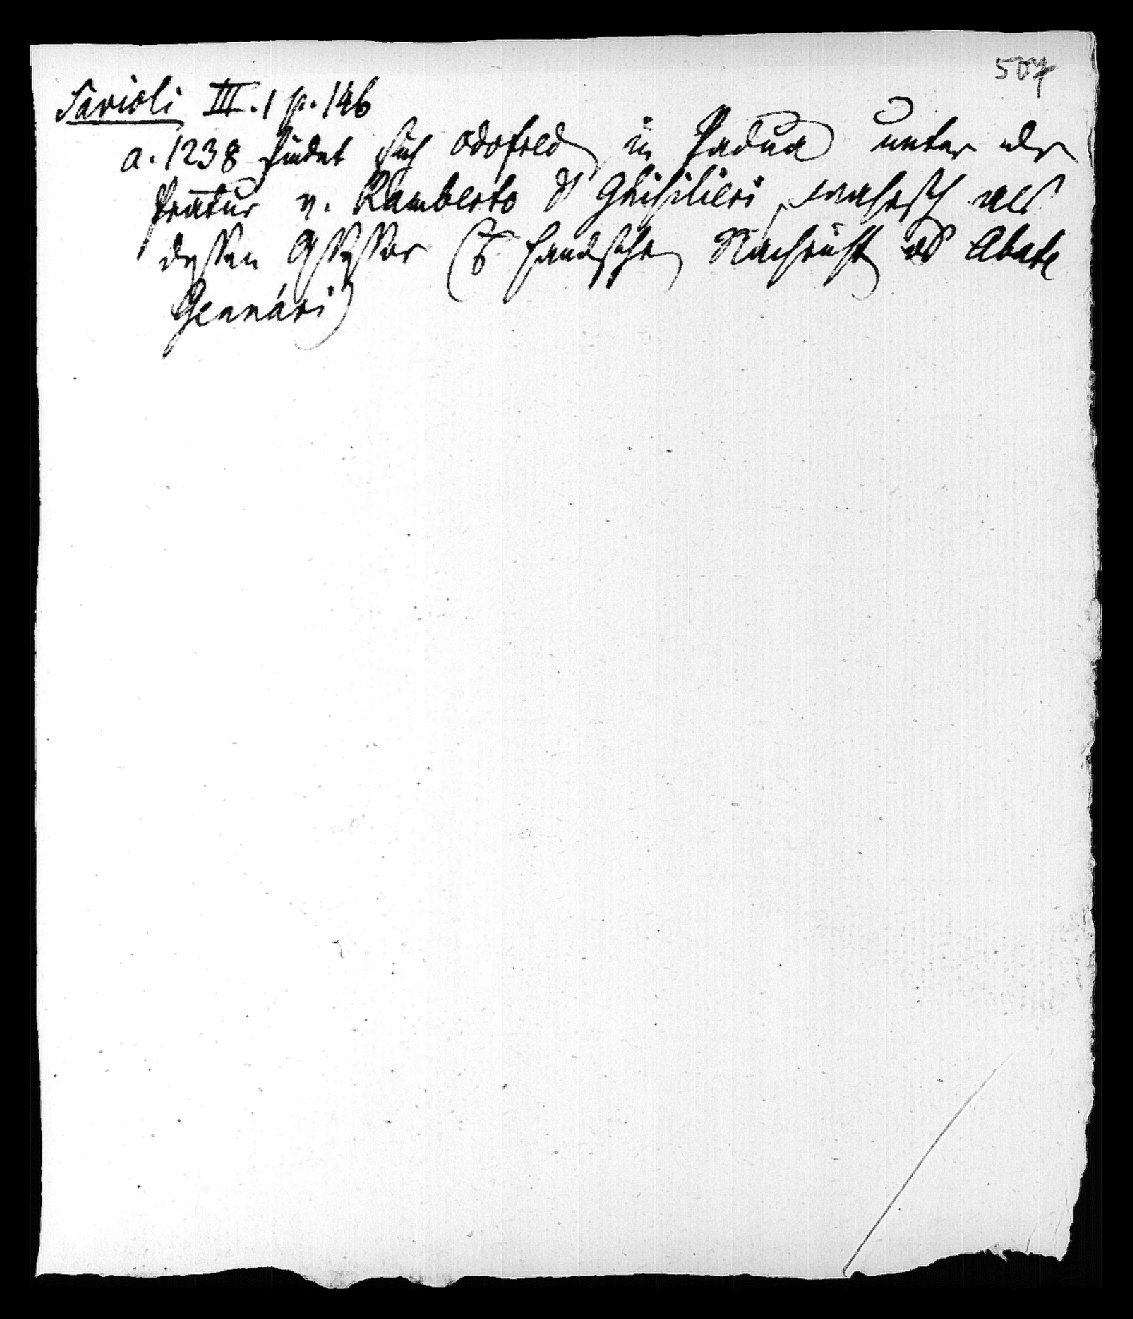 507
Savioli III. 1 p. 146
a. 1238 findet sich Odofred in Padua unter der
Prätur v. Ramberto Ghisilieri, wahrsch als
dessen Assessor (handsche Nachricht des Abate
Gennari)